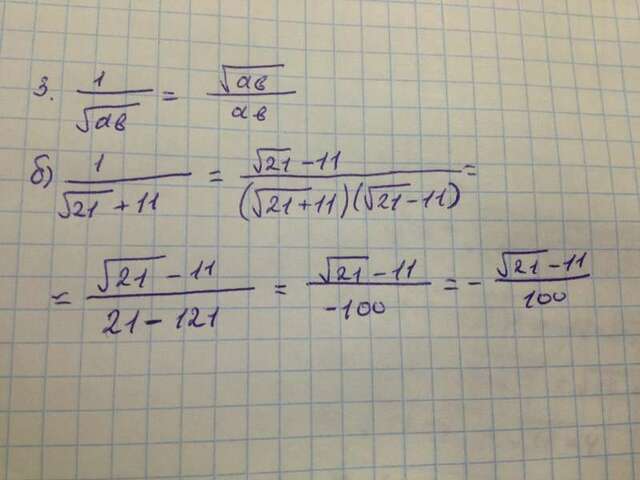 3. 1/√ав = √ав/ав
б) 1/(√21 + 11) = (√21 - 11)/((√21 + 11)(√21 - 11)) =
= (√21 - 11)/(21 - 121) = (√21 - 11)/(-100) = - (√21 - 11)/100